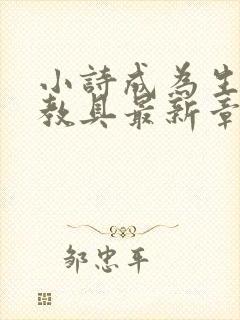 小詩成為生
教具最新章
邹忠平